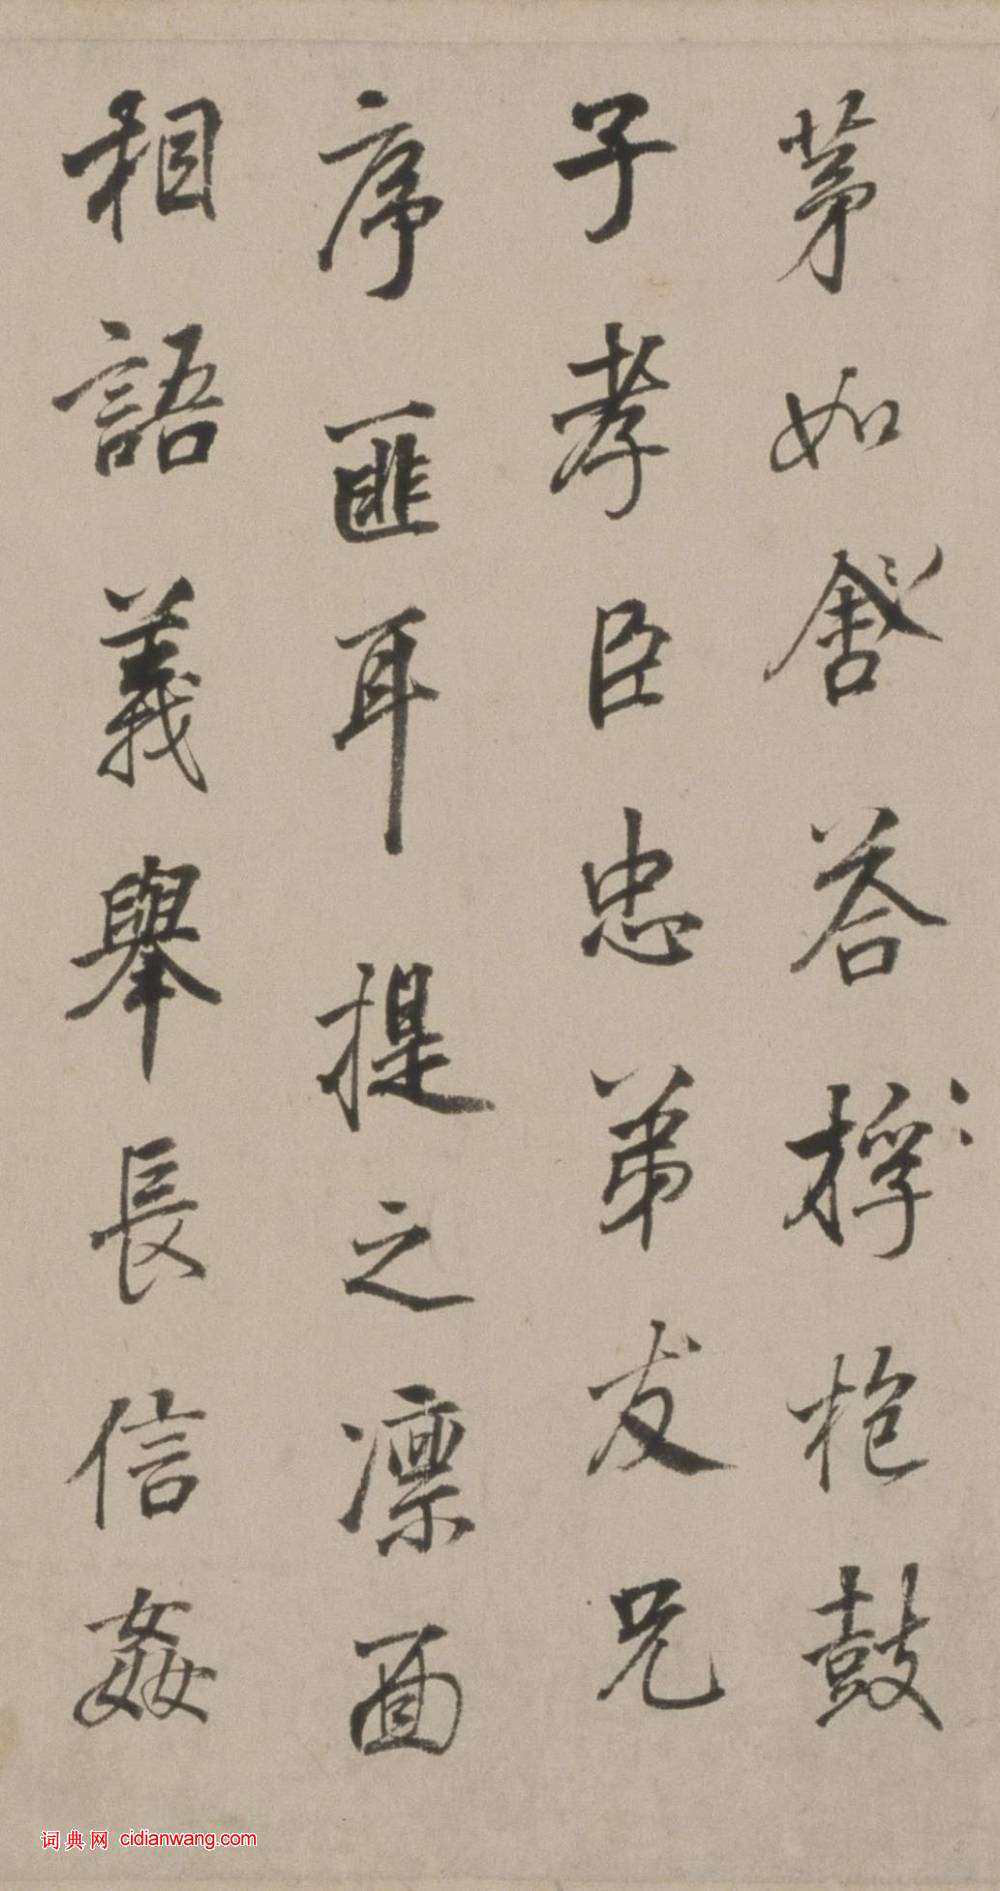 茅如舍答桴枹鼓
子孝臣忠弟友兄
序匪耳提之凛面
相語義舉長信姦
词典网 cidianwang.com